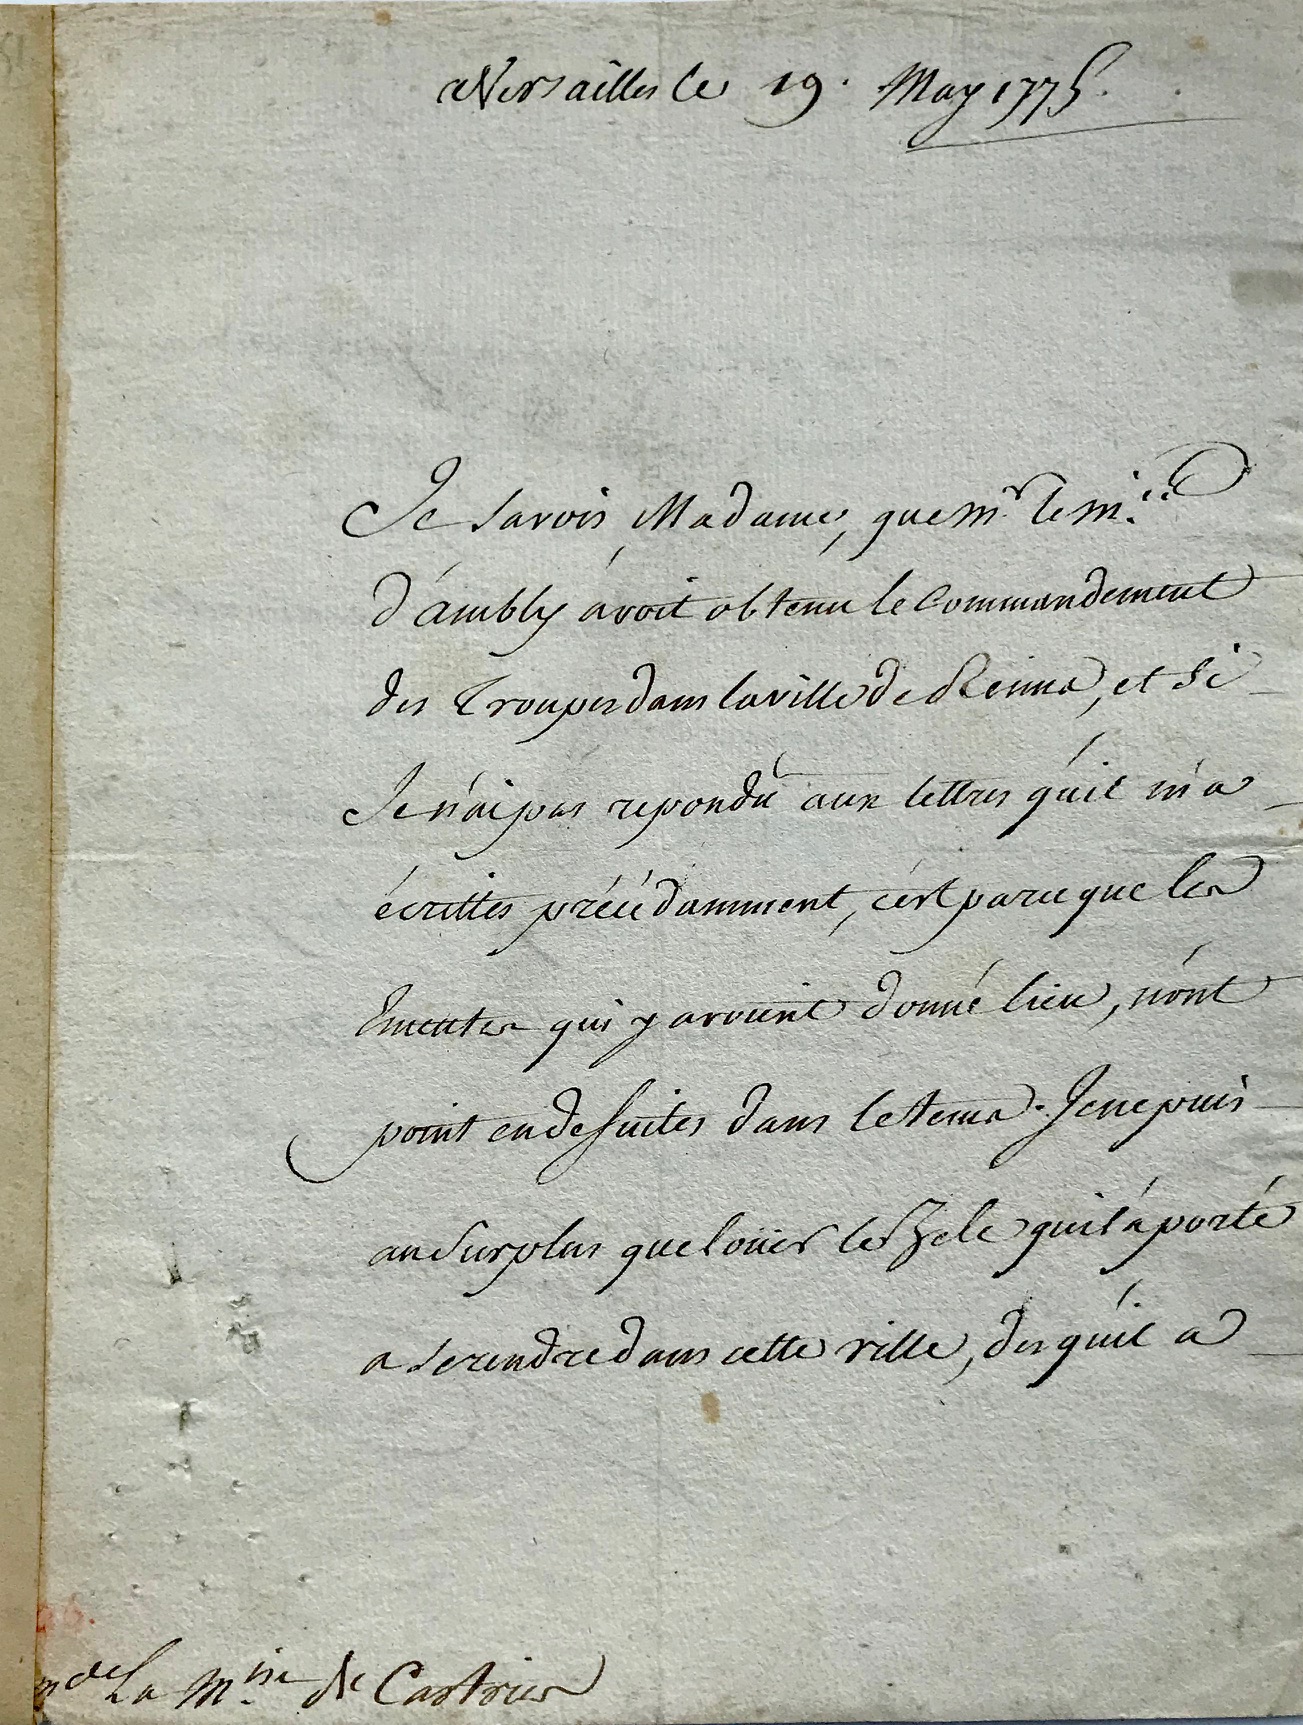 a Versailles le 19. May 1775.
Je savois, Madame, que Mr. le M.is
d'ambly avoit obtenu le Commandement
des Troupes dans la ville de Reims, et si
Je n'ai pas repondu aux lettres qu'il m'a
écrittes précédamment, c'est parce que les
Emeutes qui y avoient donné lieu, n'ont
point eu de suites dans le tems. Je ne puis
au surplus que loüer le Zele qu'il a porté
a se rendre dans cette ville, des qu'il a
Mde La M.ise de Castries